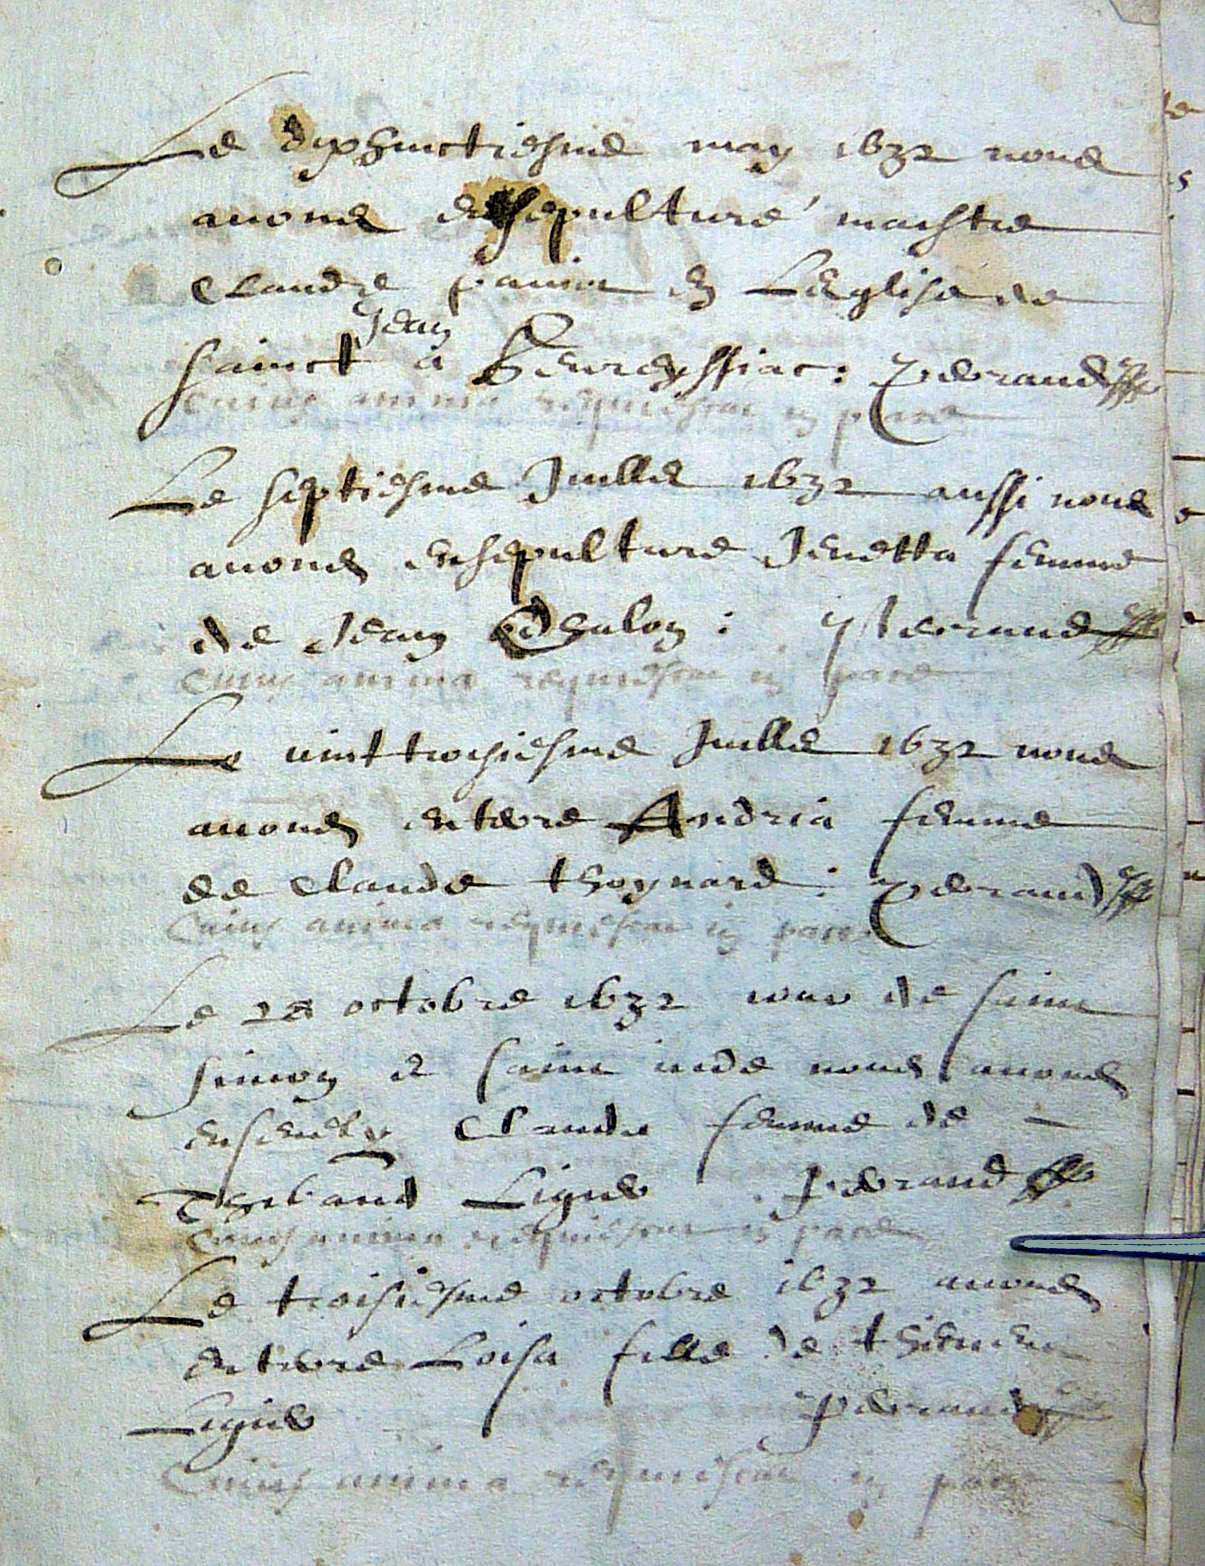 Le dixhuictiesme may 1632 nous
avons ensepulturé maistre
Claude en Leglise de
sainct Jean a Gevreyssiac : Perrand
Cuius anima requiescat in pace
Le septiesme Juillé 1632 aussi nous
avons ensepulture Jenetta femme
de Jean Chalon : Perrand
Cuius anima requiescat in pace
Le vinttroisiesme Juille 1632 nous
avons enterre Andria femme
de Claude thoynard : Perrand
Cuius anima requiescat in pace
Le 28 octobre 1632 jour de saint
simon & saint jude nous avons
ensevely Clauda femme de
Thibaud Ligier Perrand
Cuius anima requiescat in pace
Le troisiesme octobre 1632 avons
enterre Loisa fille de
Ligier Perrand
Cuius anima requiescat in pace